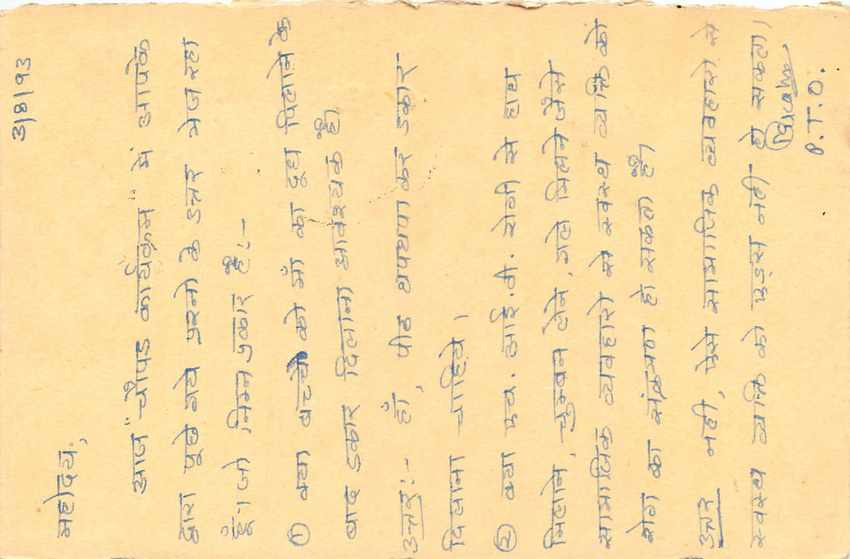 3/8/93
महोदय,
आज "चौपड कार्यक्रम" में आपके
द्वारा पूछे गये प्रश्नो के उत्तर भेज रहा
हूँ। जो निम्न प्रकार है:-
① क्या बच्चे को माँ का दूध पिलाने के
बाद डकार दिलाना आवश्यक है।
उत्तर:- हाँ, पीठ थपथपाकर डकार
दिलाना चाहिये।
② क्या एच. आई. वी. रोगी से हाथ
मिलाने, चुम्बन लेने, गले मिलने जैसे
सामाजिक व्यवहारो से स्वस्थ व्यक्ति को
रोग का संक्रमण हो सकता है।
उत्तर नही, ऐसे सामाजिक व्यवहारो से
स्वस्थ व्यक्ति को एड्स नही हो सकता।
P.T.O.